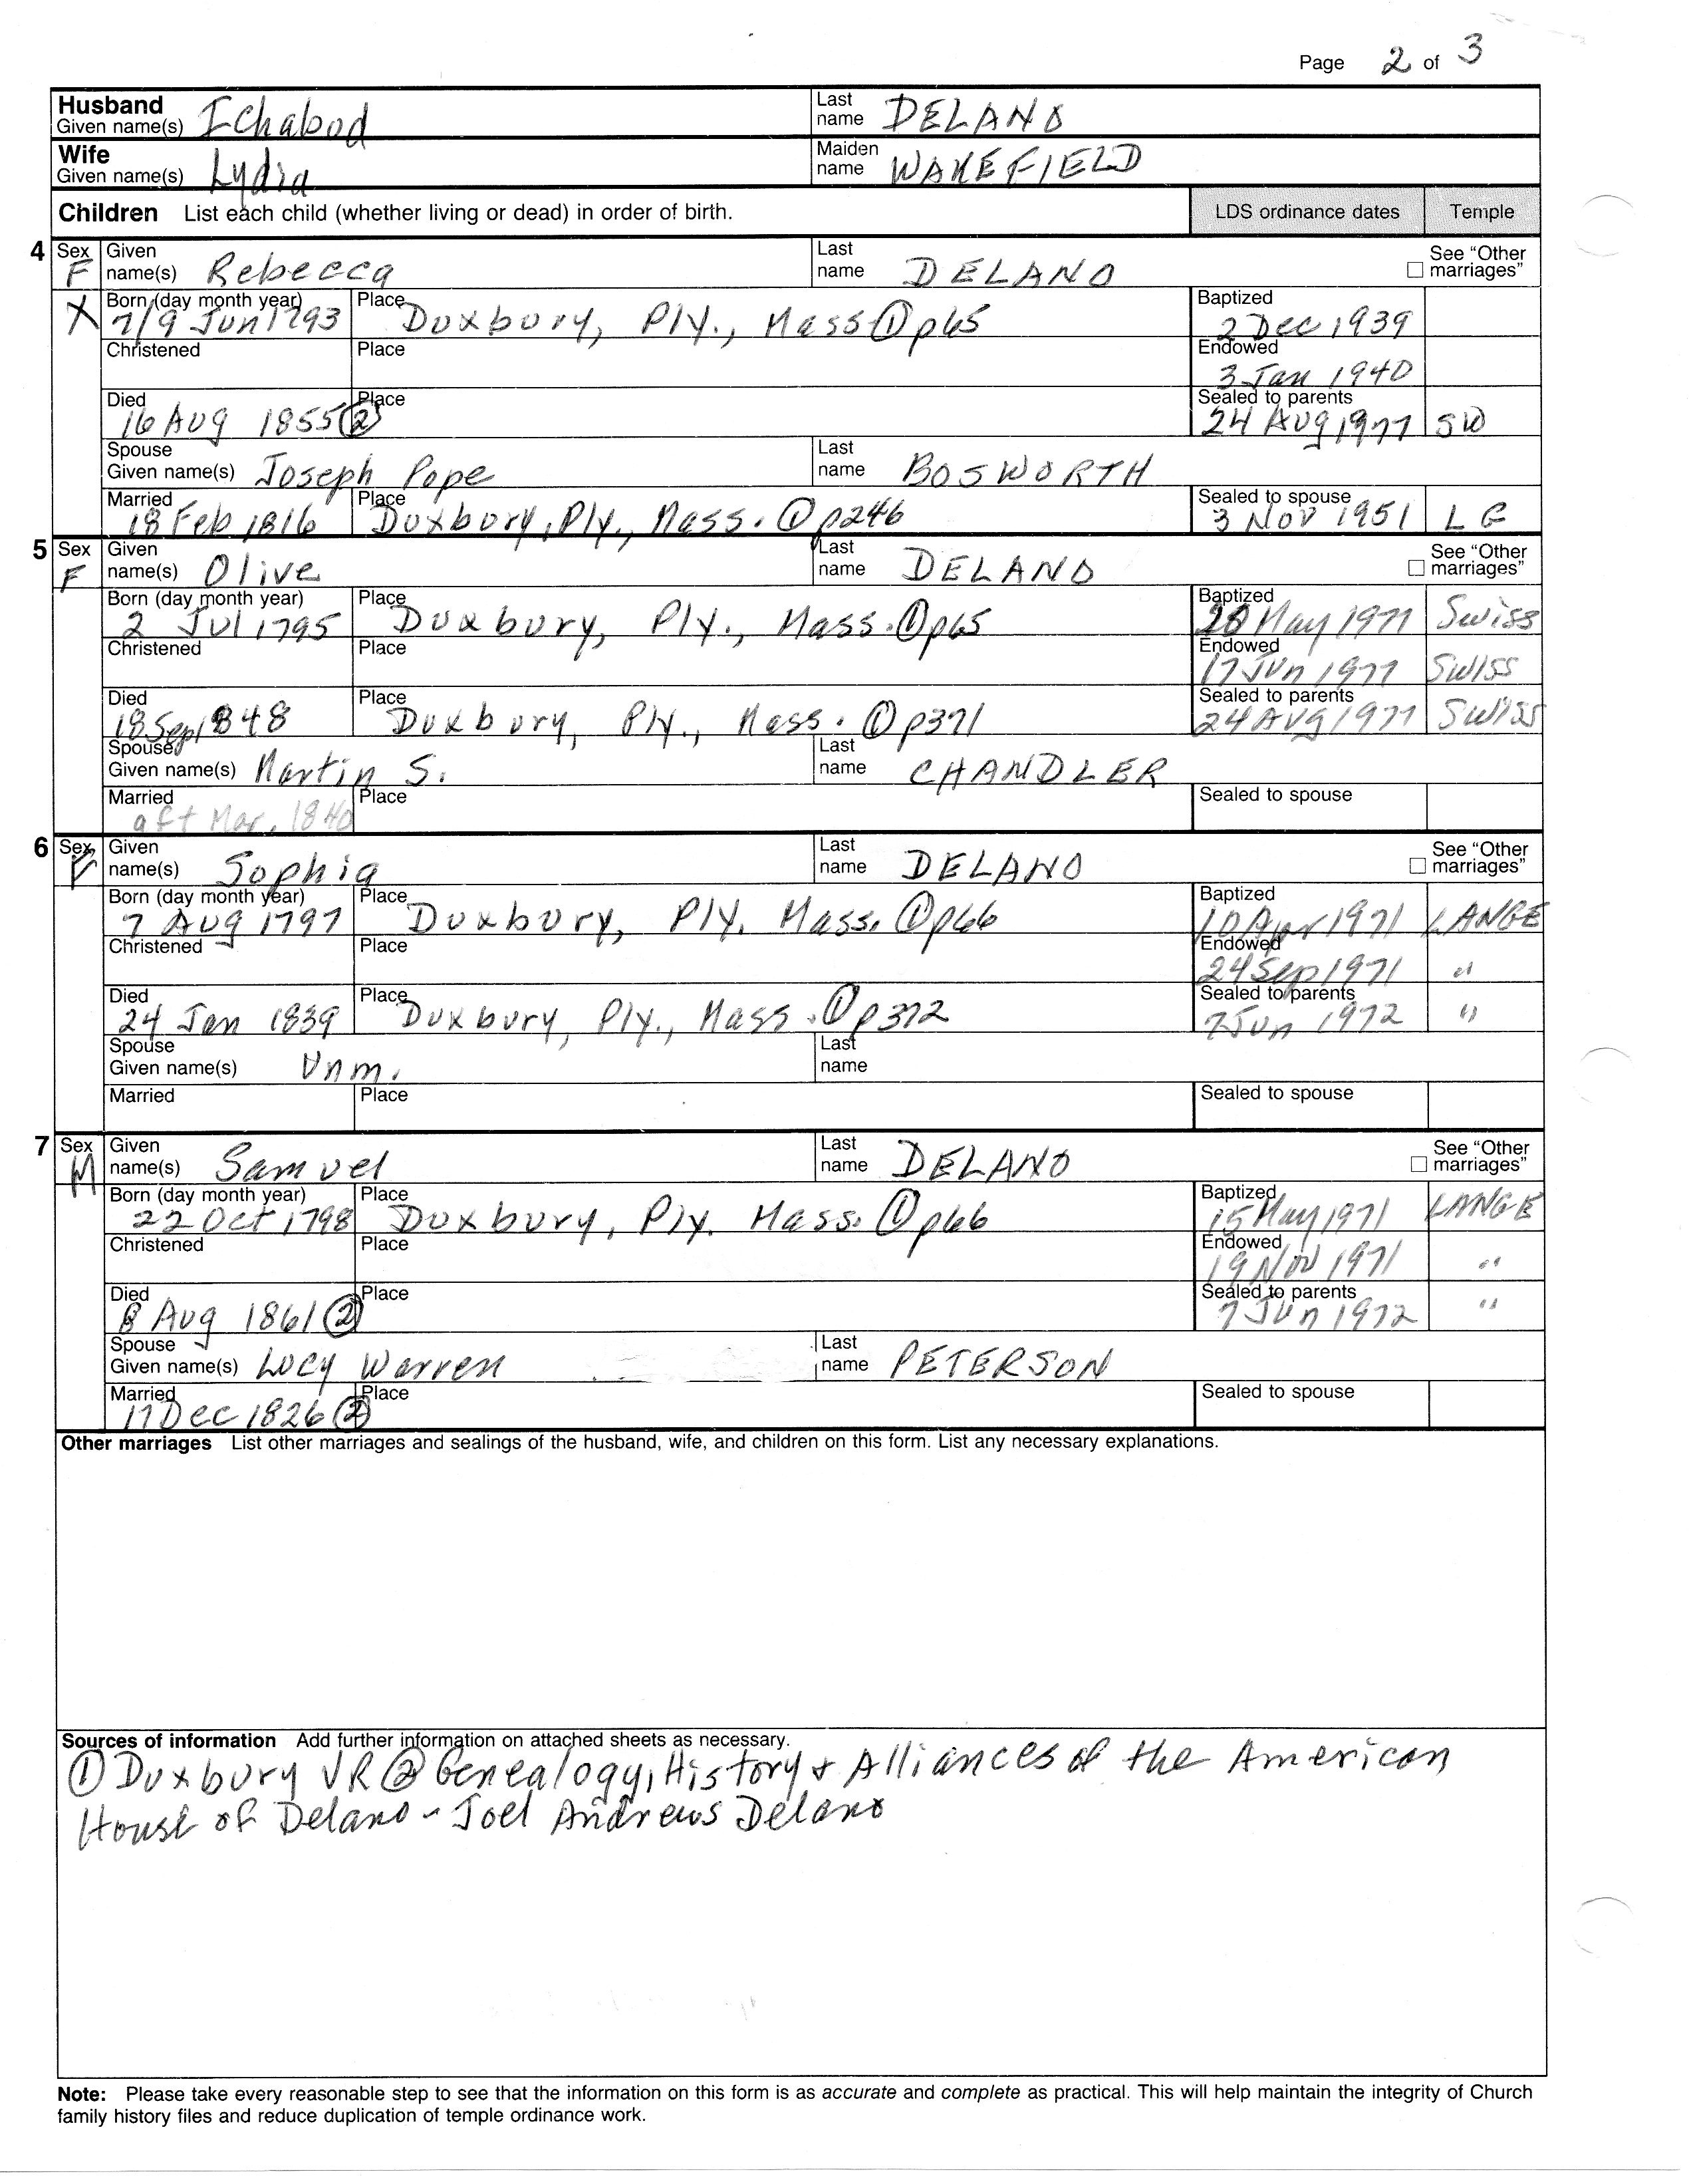 Page 2 of 3
Husband Given name(s) Ichabod Last name DELANO
Wife Given name(s) Lydia Maiden name WAKEFIELD
Children List each child (whether living or dead) in order of birth. LDS ordinance dates Temple
4 Sex F Given name(s) Rebecca Last name DELANO See “Other marriages”
X Born (day month year) 7/9 Jun 1793 Place Duxbury, Ply., Mass ① p65 Baptized 2 Dec 1939
Christened Place Endowed 3 Jan 1940
Died 16 Aug 1855 ② Place Sealed to parents 24 Aug 1977 SW
Spouse Given name(s) Joseph Pope Last name BOSWORTH
Married 18 Feb 1816 Place Duxbury, Ply., Mass. ① p246 Sealed to spouse 3 Nov 1951 LG
5 Sex F Given name(s) Olive Last name DELANO See “Other marriages”
Born (day month year) 2 Jul 1795 Place Duxbury, Ply., Mass. ① p65 Baptized 28 May 1977 Swiss
Christened Place Endowed 17 Jun 1977 SWISS
Died 18 Sep 1848 Place Duxbury, Ply., Mass. ① p371 Sealed to parents 24 Aug 1977 SWISS
Spouse Given name(s) Martin S. Last name CHANDLER
Married aft Mar, 1840 Place Sealed to spouse
6 Sex F Given name(s) Sophia Last name DELANO See “Other marriages”
Born (day month year) 7 Aug 1797 Place Duxbury, Ply. Mass. ① p66 Baptized 10 Apr 1971 LANGE
Christened Place Endowed 24 Sep 1971 "
Died 24 Jan 1839 Place Duxbury, Ply., Mass. ① p372 Sealed to parents 7 Jun 1972 "
Spouse Given name(s) Unm. Last name
Married Place Sealed to spouse
7 Sex M Given name(s) Samuel Last name DELANO See “Other marriages”
Born (day month year) 22 Oct 1798 Place Duxbury, Ply. Mass. ① p66 Baptized 15 May 1971 LANGE
Christened Place Endowed 19 Nov 1971 "
Died 8 Aug 1861 ② Place Sealed to parents 7 Jun 1972 "
Spouse Given name(s) Lucy Warren Last name PETERSON
Married 17 Dec 1826 ② Place Sealed to spouse
Other marriages List other marriages and sealings of the husband, wife, and children on this form. List any necessary explanations.
Sources of information Add further information on attached sheets as necessary.
① Duxbury VR ② Genealogy, History & Alliances of the American
House of Delano - Joel Andrews Delano
Note: Please take every reasonable step to see that the information on this form is as accurate and complete as practical. This will help maintain the integrity of Church
family history files and reduce duplication of temple ordinance work.